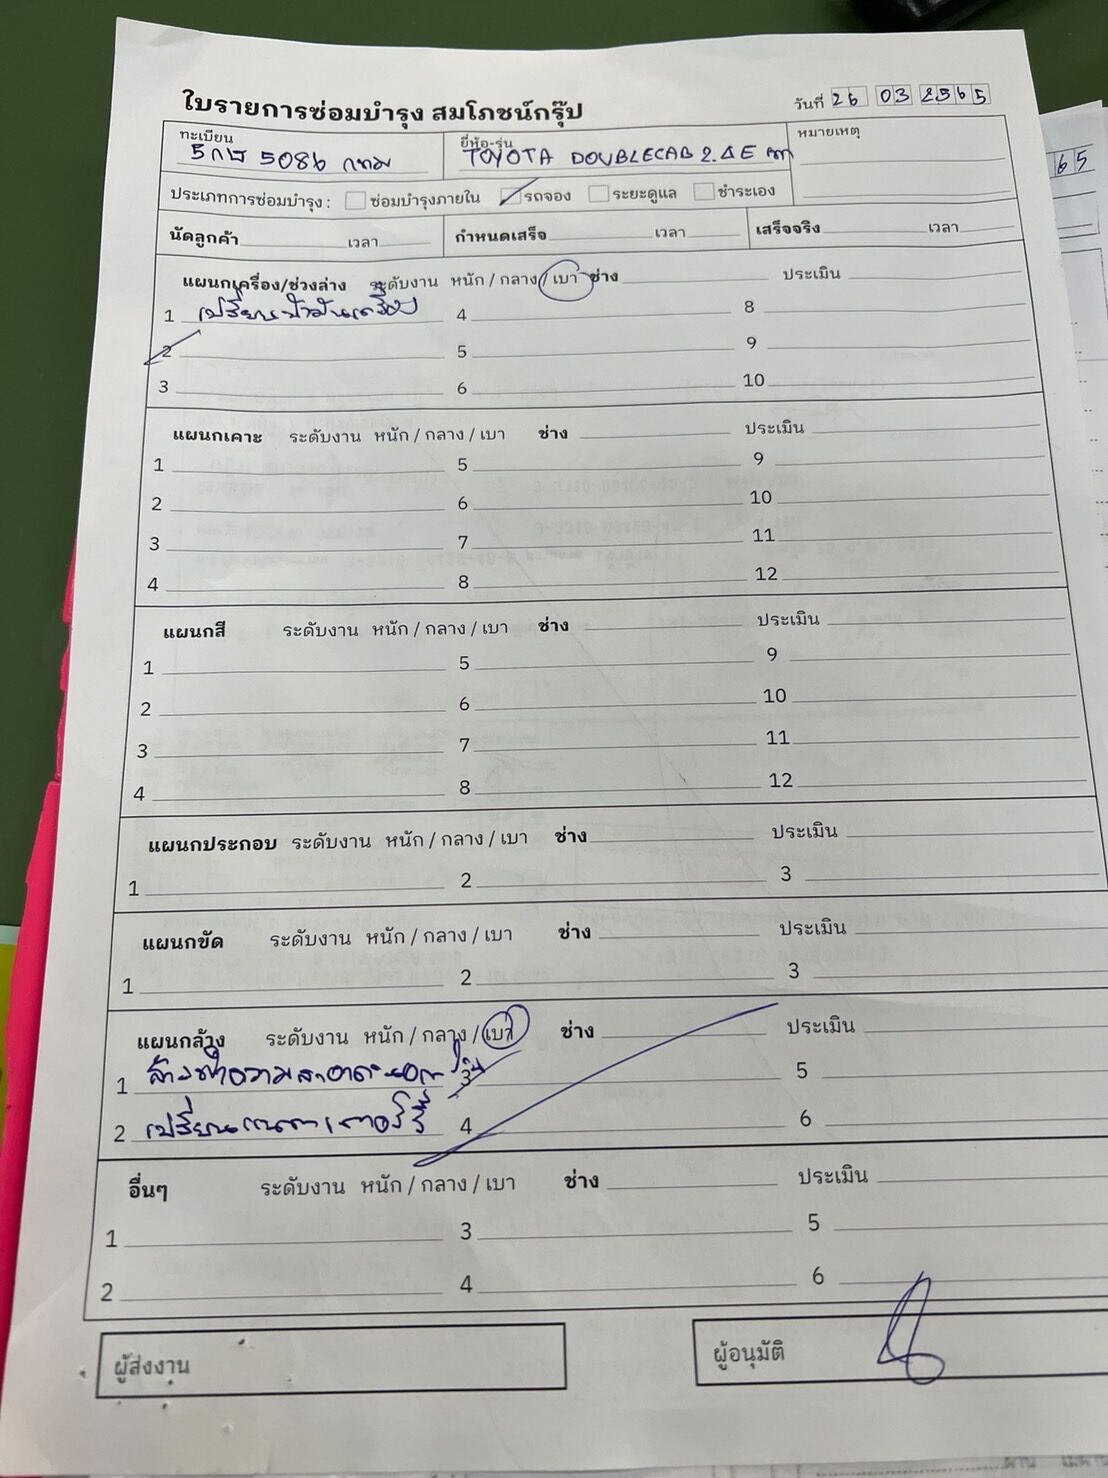 ใบรายการซ่อมบำรุง สมโภชน์กรุ๊ป
วันที่ 26 03 2565
ทะเบียน 5086 กทม
ยี่ห้อ-รุ่น TOYOTA DOUBLECAB 2.4E
หมายเหตุ
ประเภทการซ่อมบำรุง : ซ่อมบำรุงภายใน รถจอง ระยะดูแล ชำระเอง
นัดลูกค้า เวลา กำหนดเสร็จ เวลา เสร็จจริง เวลา
แผนกเครื่อง/ช่วงล่าง ระดับงาน หนัก / กลาง / เบา ช่าง ประเมิน
1 เปลี่ยนน้ำมันเครื่อง 4 8
2 5 9
3 6 10
แผนกเคาะ ระดับงาน หนัก / กลาง / เบา ช่าง ประเมิน
1 5 9
2 6 10
3 7 11
4 8 12
แผนกสี ระดับงาน หนัก / กลาง / เบา ช่าง ประเมิน
1 5 9
2 6 10
3 7 11
4 8 12
แผนกประกอบ ระดับงาน หนัก / กลาง / เบา ช่าง ประเมิน
1 2 3
แผนกขัด ระดับงาน หนัก / กลาง / เบา ช่าง ประเมิน
1 2 3
แผนกล้าง ระดับงาน หนัก / กลาง / เบา ช่าง ประเมิน
1 ล้างทำความสะอาด 3 5
2 เปลี่ยนแบตเตอร์รี่ 4 6
อื่นๆ ระดับงาน หนัก / กลาง / เบา ช่าง ประเมิน
1 3 5
2 4 6
ผู้ส่งงาน ผู้อนุมัติ
65